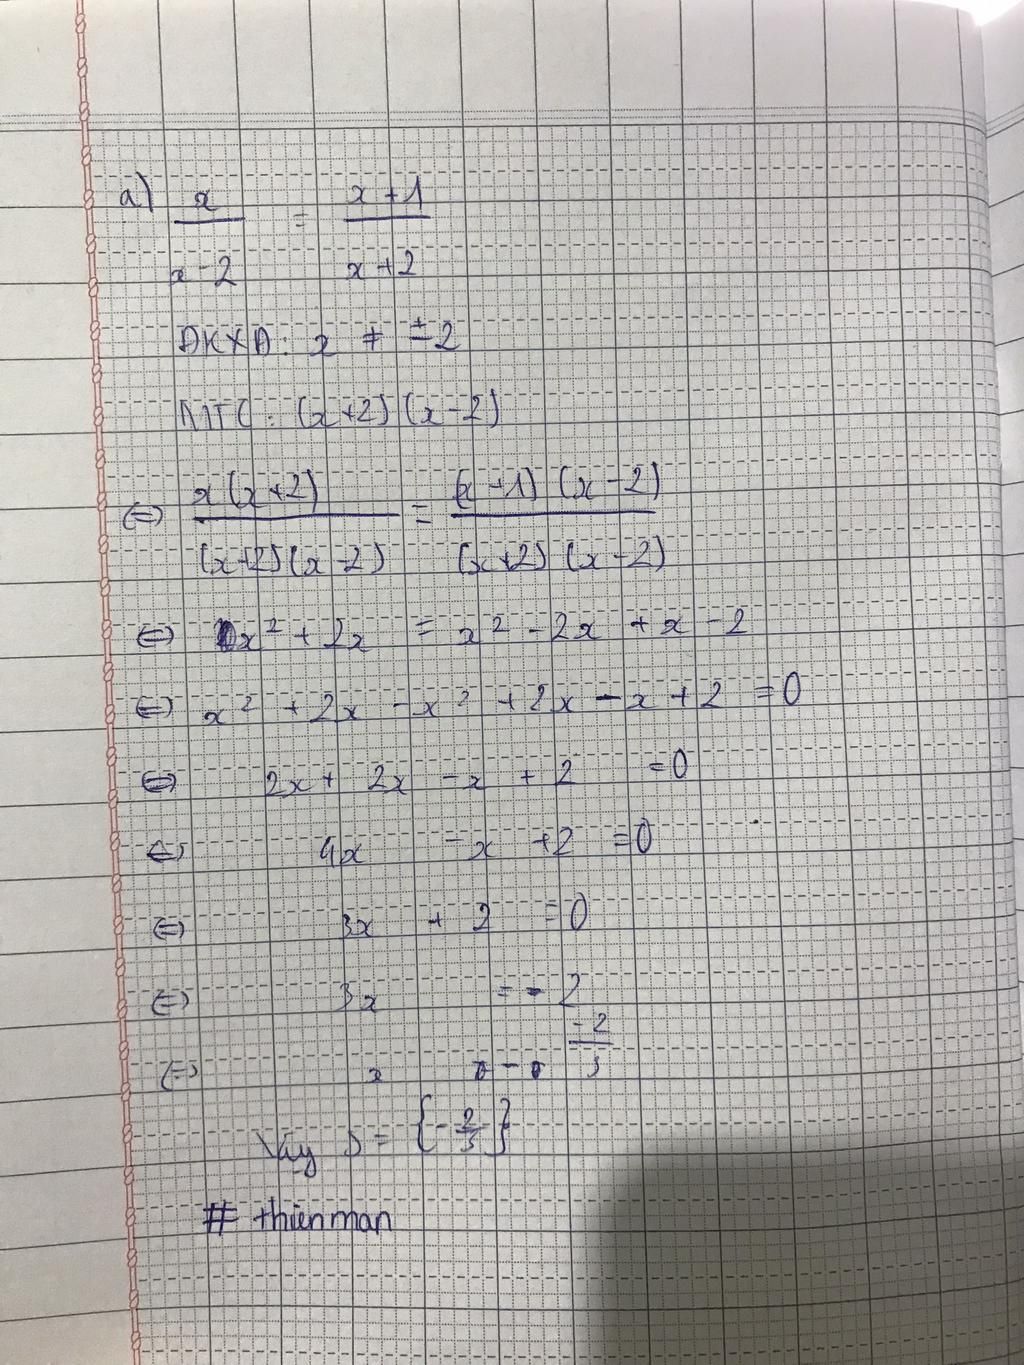 a) x/(x-2) = (x+1)/(x+2)
ĐKXĐ: x ≠ ±2
MTC: (x+2)(x-2)
⇔ x(x+2)/((x+2)(x-2)) = (x+1)(x-2)/((x+2)(x-2))
⇔ x² + 2x = x² - 2x + x - 2
⇔ x² + 2x - x² + 2x - x + 2 = 0
⇔ 2x + 2x - x + 2 = 0
⇔ 4x - x + 2 = 0
⇔ 3x + 2 = 0
⇔ 3x = -2
⇔ x = -2/3
Vậy S = {-2/3}
# thienman